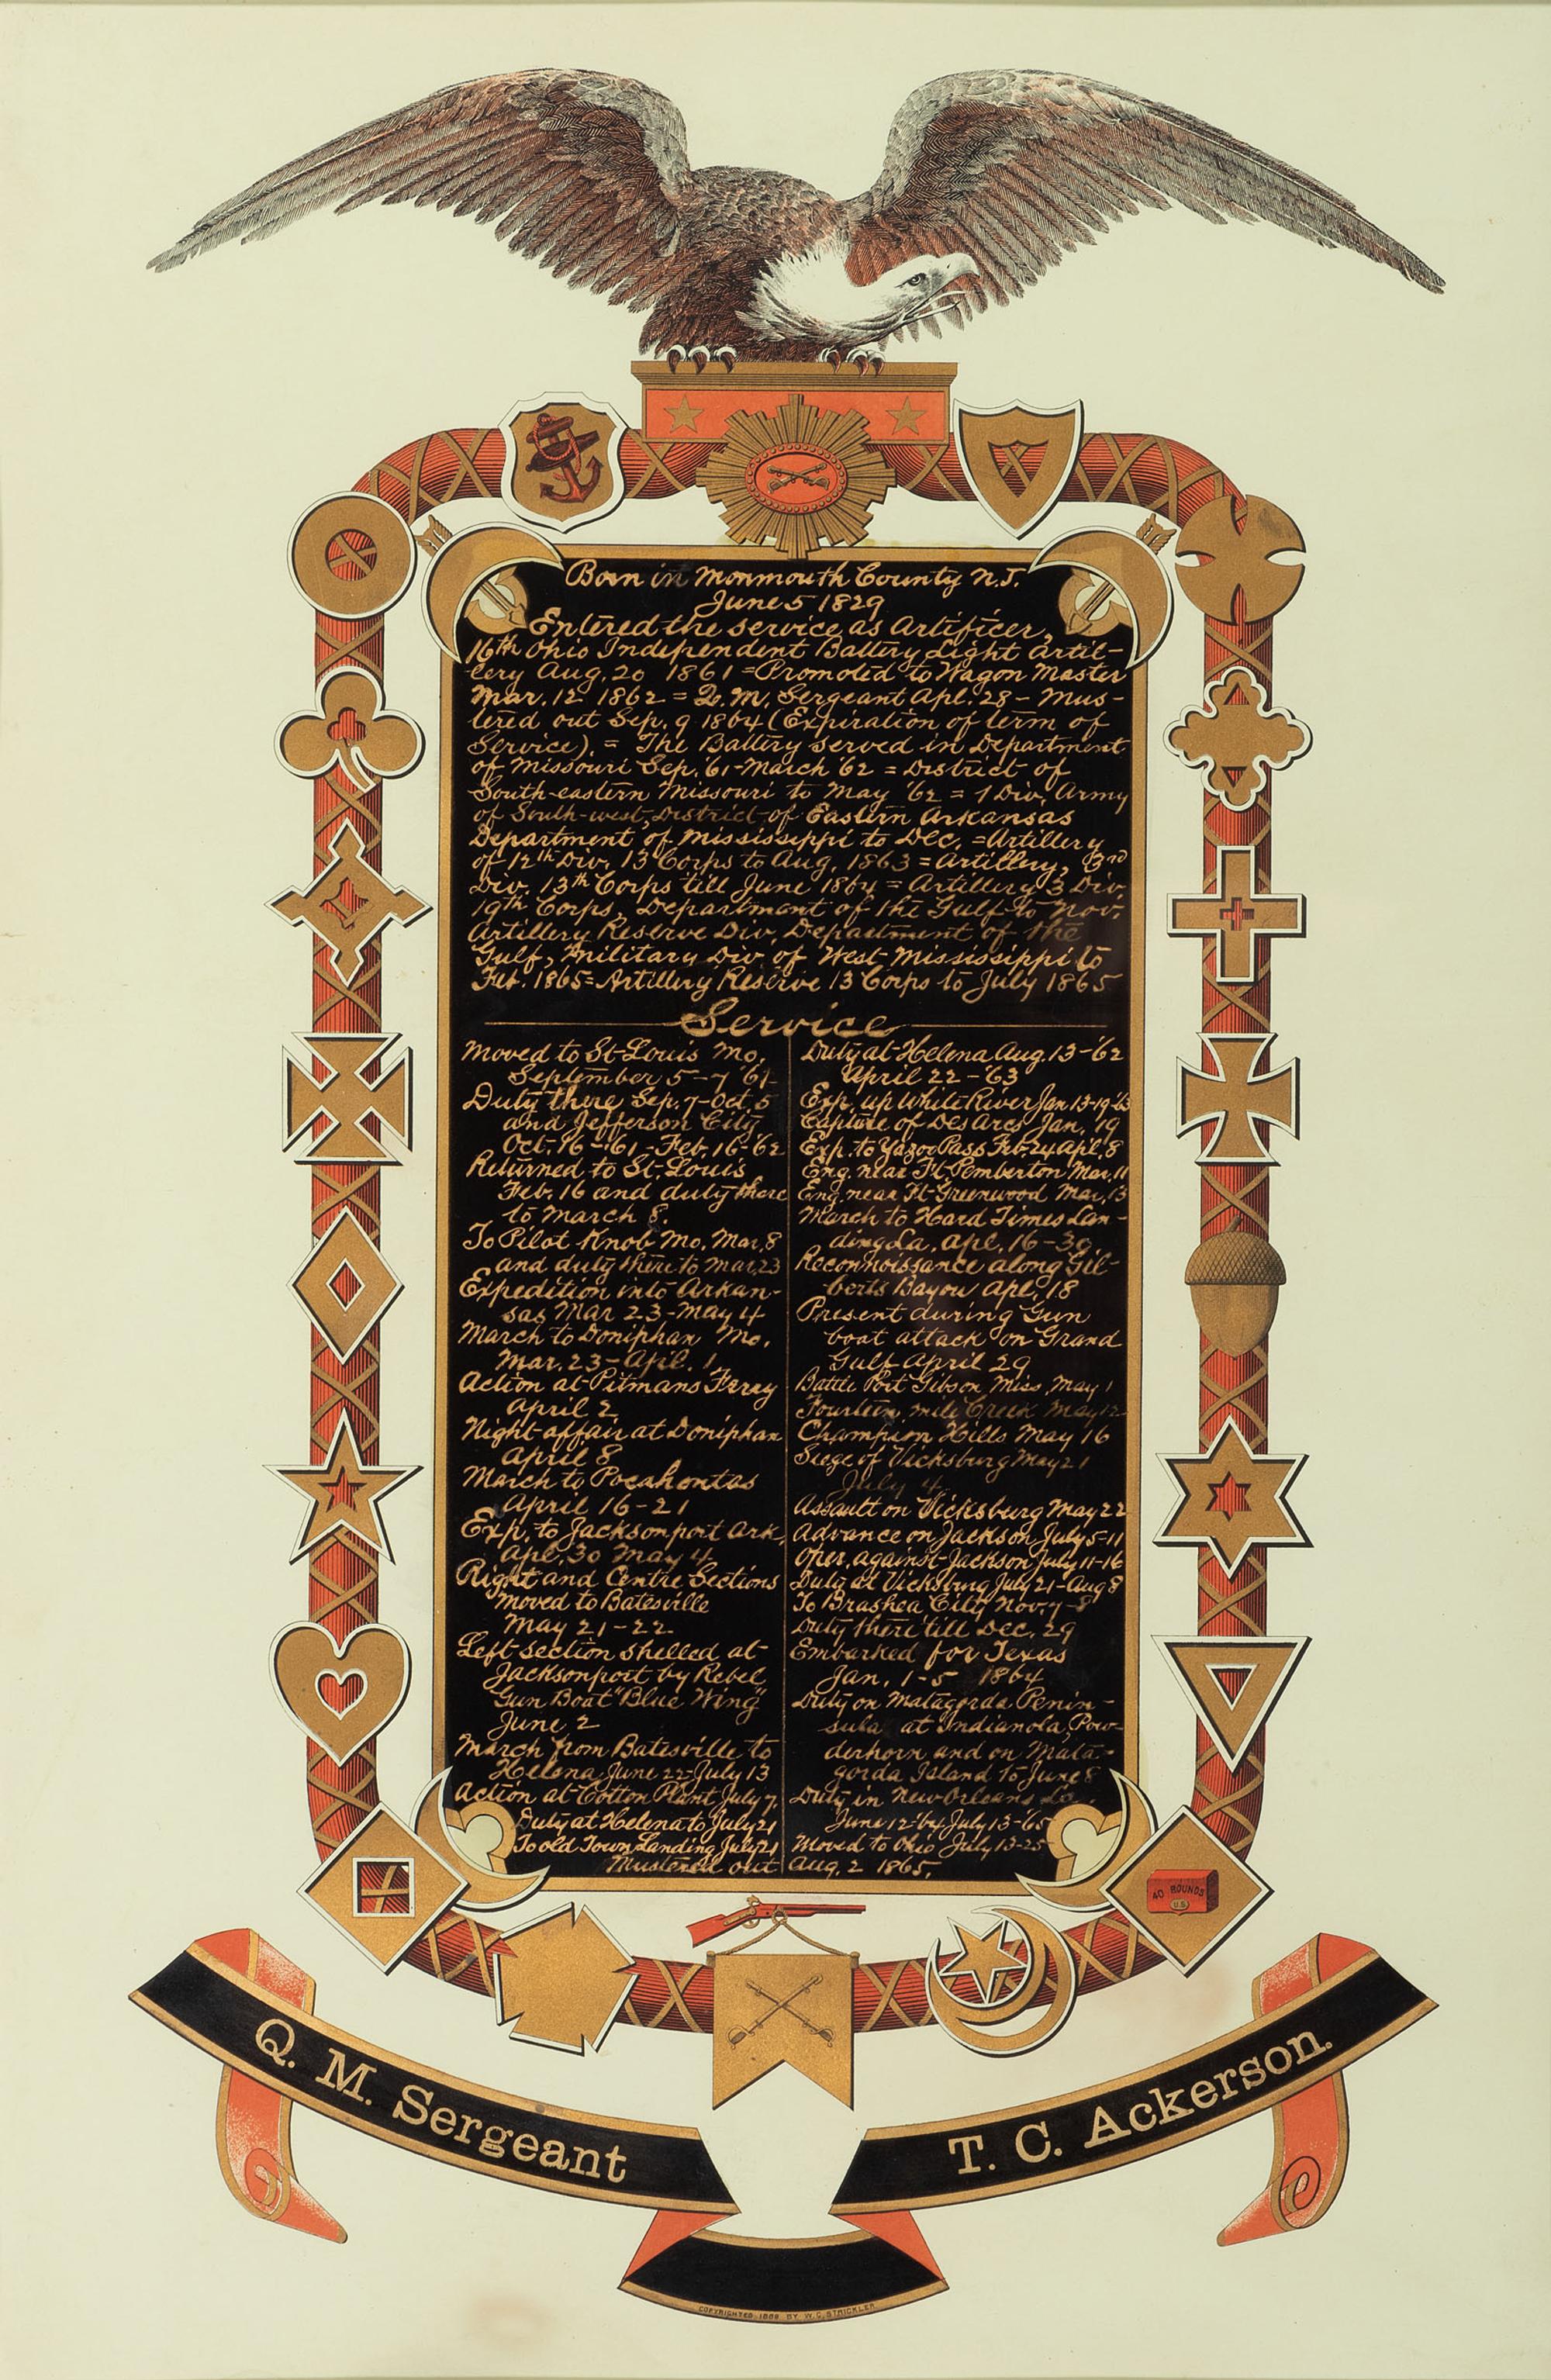 Born in Monmouth County N.J.
June 5 1829
Entered the service as Artificer,
16th Ohio Independent Battery Light Artil-
lery Aug. 20 1861 = Promoted to Wagon Master
Mar. 12 1862 = Q. M. Sergeant Apl. 28 - Mus-
tered out Sep. 9 1864 (Expiration of term of
Service). = The Battery served in Department
of Missouri Sep. '61-March '62 = District of
South-eastern Missouri to May '62 = 1 Div. Army
of South-west, District of Eastern Arkansas
Department of Mississippi to Dec. = Artillery
of 12th Div. 13 Corps to Aug. 1863 = Artillery, 3rd
Div. 13th Corps till June 1864 = Artillery 3 Div.
19th Corps, Department of the Gulf to Nov.
Artillery Reserve Div. Department of the
Gulf, Military Div of West Mississippi to
Feb. 1865 = Artillery Reserve 13 Corps to July 1865
Service
Moved to St. Louis Mo.
September 5-7 '61
Duty there Sep. 7-Oct. 5
and Jefferson City
Oct. 16-'61-Feb. 16-'62
Returned to St. Louis
Feb. 16 and duty there
to March 8.
To Pilot Knob Mo. Mar. 8
and duty there to Mar. 23
Expedition into Arkan-
sas Mar 23-May 4
March to Doniphan Mo.
Mar. 23-Apl. 1
Action at Pitmans Ferry
April 2
Night affair at Doniphan
April 8
March to Pocahontas
April 16-21
Exp. to Jacksonport Ark.
Apl. 30 May 4
Right and Centre Sections
moved to Batesville
May 21-22
Left section shelled at
Jacksonport by Rebel
Gun Boat "Blue Wing"
June 2
March from Batesville to
Helena June 22-July 13
Action at Cotton Plant July 7
Duty at Helena to July 21
To old Town Landing July 21
Duty at Helena Aug. 13-'62
April 22-'63
Exp. up White River Jan 13-19-'63
Capture of Des Arcs Jan. 19
Exp. to Yazoo Pass Feb. 24 Apl. 8
Eng. near Ft. Pemberton Mar. 11
Eng. near Ft. Greenwood Mar. 13
March to Hard Times Lan-
ding La. Apl. 16-30
Reconnoissance along Gil-
berts Bayou Apl. 18
Present during Gun
boat attack on Grand
Gulf April 29
Battle Port Gibson Miss. May 1
Fourteen mile Creek May 12
Champion Hills May 16
Siege of Vicksburg May 21
July 4
Assault on Vicksburg May 22
Advance on Jackson July 5-11
Oper. against Jackson July 11-16
Duty at Vicksburg July 21-Aug 8
To Brashea City Nov. 7-8
Duty there till Dec. 29
Embarked for Texas
Jan. 1-5 1864
Duty on Matagorda Penin-
sula at Indianola, Pow-
derhorn and on Mata-
gorda Island to June 8
Duty in New Orleans La.
June 12-'64 July 13-'65
Moved to Ohio July 13-25
Mustered out Aug. 2 1865.
40 ROUNDS
U.S.
Q. M. Sergeant
T. C. Ackerson.
COPYRIGHTED 1886 BY W. C. STRICKLER